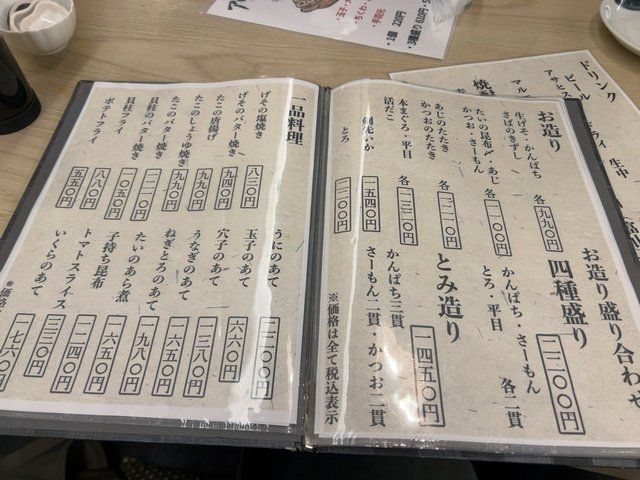 お造り
生げそ・かんぱち
さばのきずし
各 九九〇円
たいの昆布〆・あじ
かつお・さーもん
各 一一〇〇円
あじのたたき
かつおのたたき
各 一二一〇円
本まぐろ・平目
各 一三二〇円
活だこ
剣先いか
一五四〇円
とろ
二二〇〇円
お造り盛り合わせ
四種盛り
二二〇〇円
かんぱち・さーもん
とろ・平目
各二貫
とみ造り
一四五〇円
かんぱち三貫
さーもん二貫・かつお二貫
※価格は全て税込表示
一品料理
げその塩焼き
八三〇円
げそのバター焼き
九四〇円
たこの唐揚げ
九九〇円
たこのしょうゆ焼き
九九〇円
たこのバター焼き
一一〇〇円
貝柱のバター焼き
一〇五〇円
貝柱フライ
八八〇円
ポテトフライ
五五〇円
うにのあて
二二〇〇円
玉子のあて
六六〇円
穴子のあて
一三八〇円
うなぎのあて
一六五〇円
ねぎとろのあて
一九八〇円
たいのあら煮
一六五〇円
子持ち昆布
一二四〇円
トマトスライス
三三〇円
いくらのあて
一七六〇円
※価格
ドリンク
ビール
アサヒス
生中
マル
焼酎
1個 220円
3種盛り 610円
ちくわ
手羽元